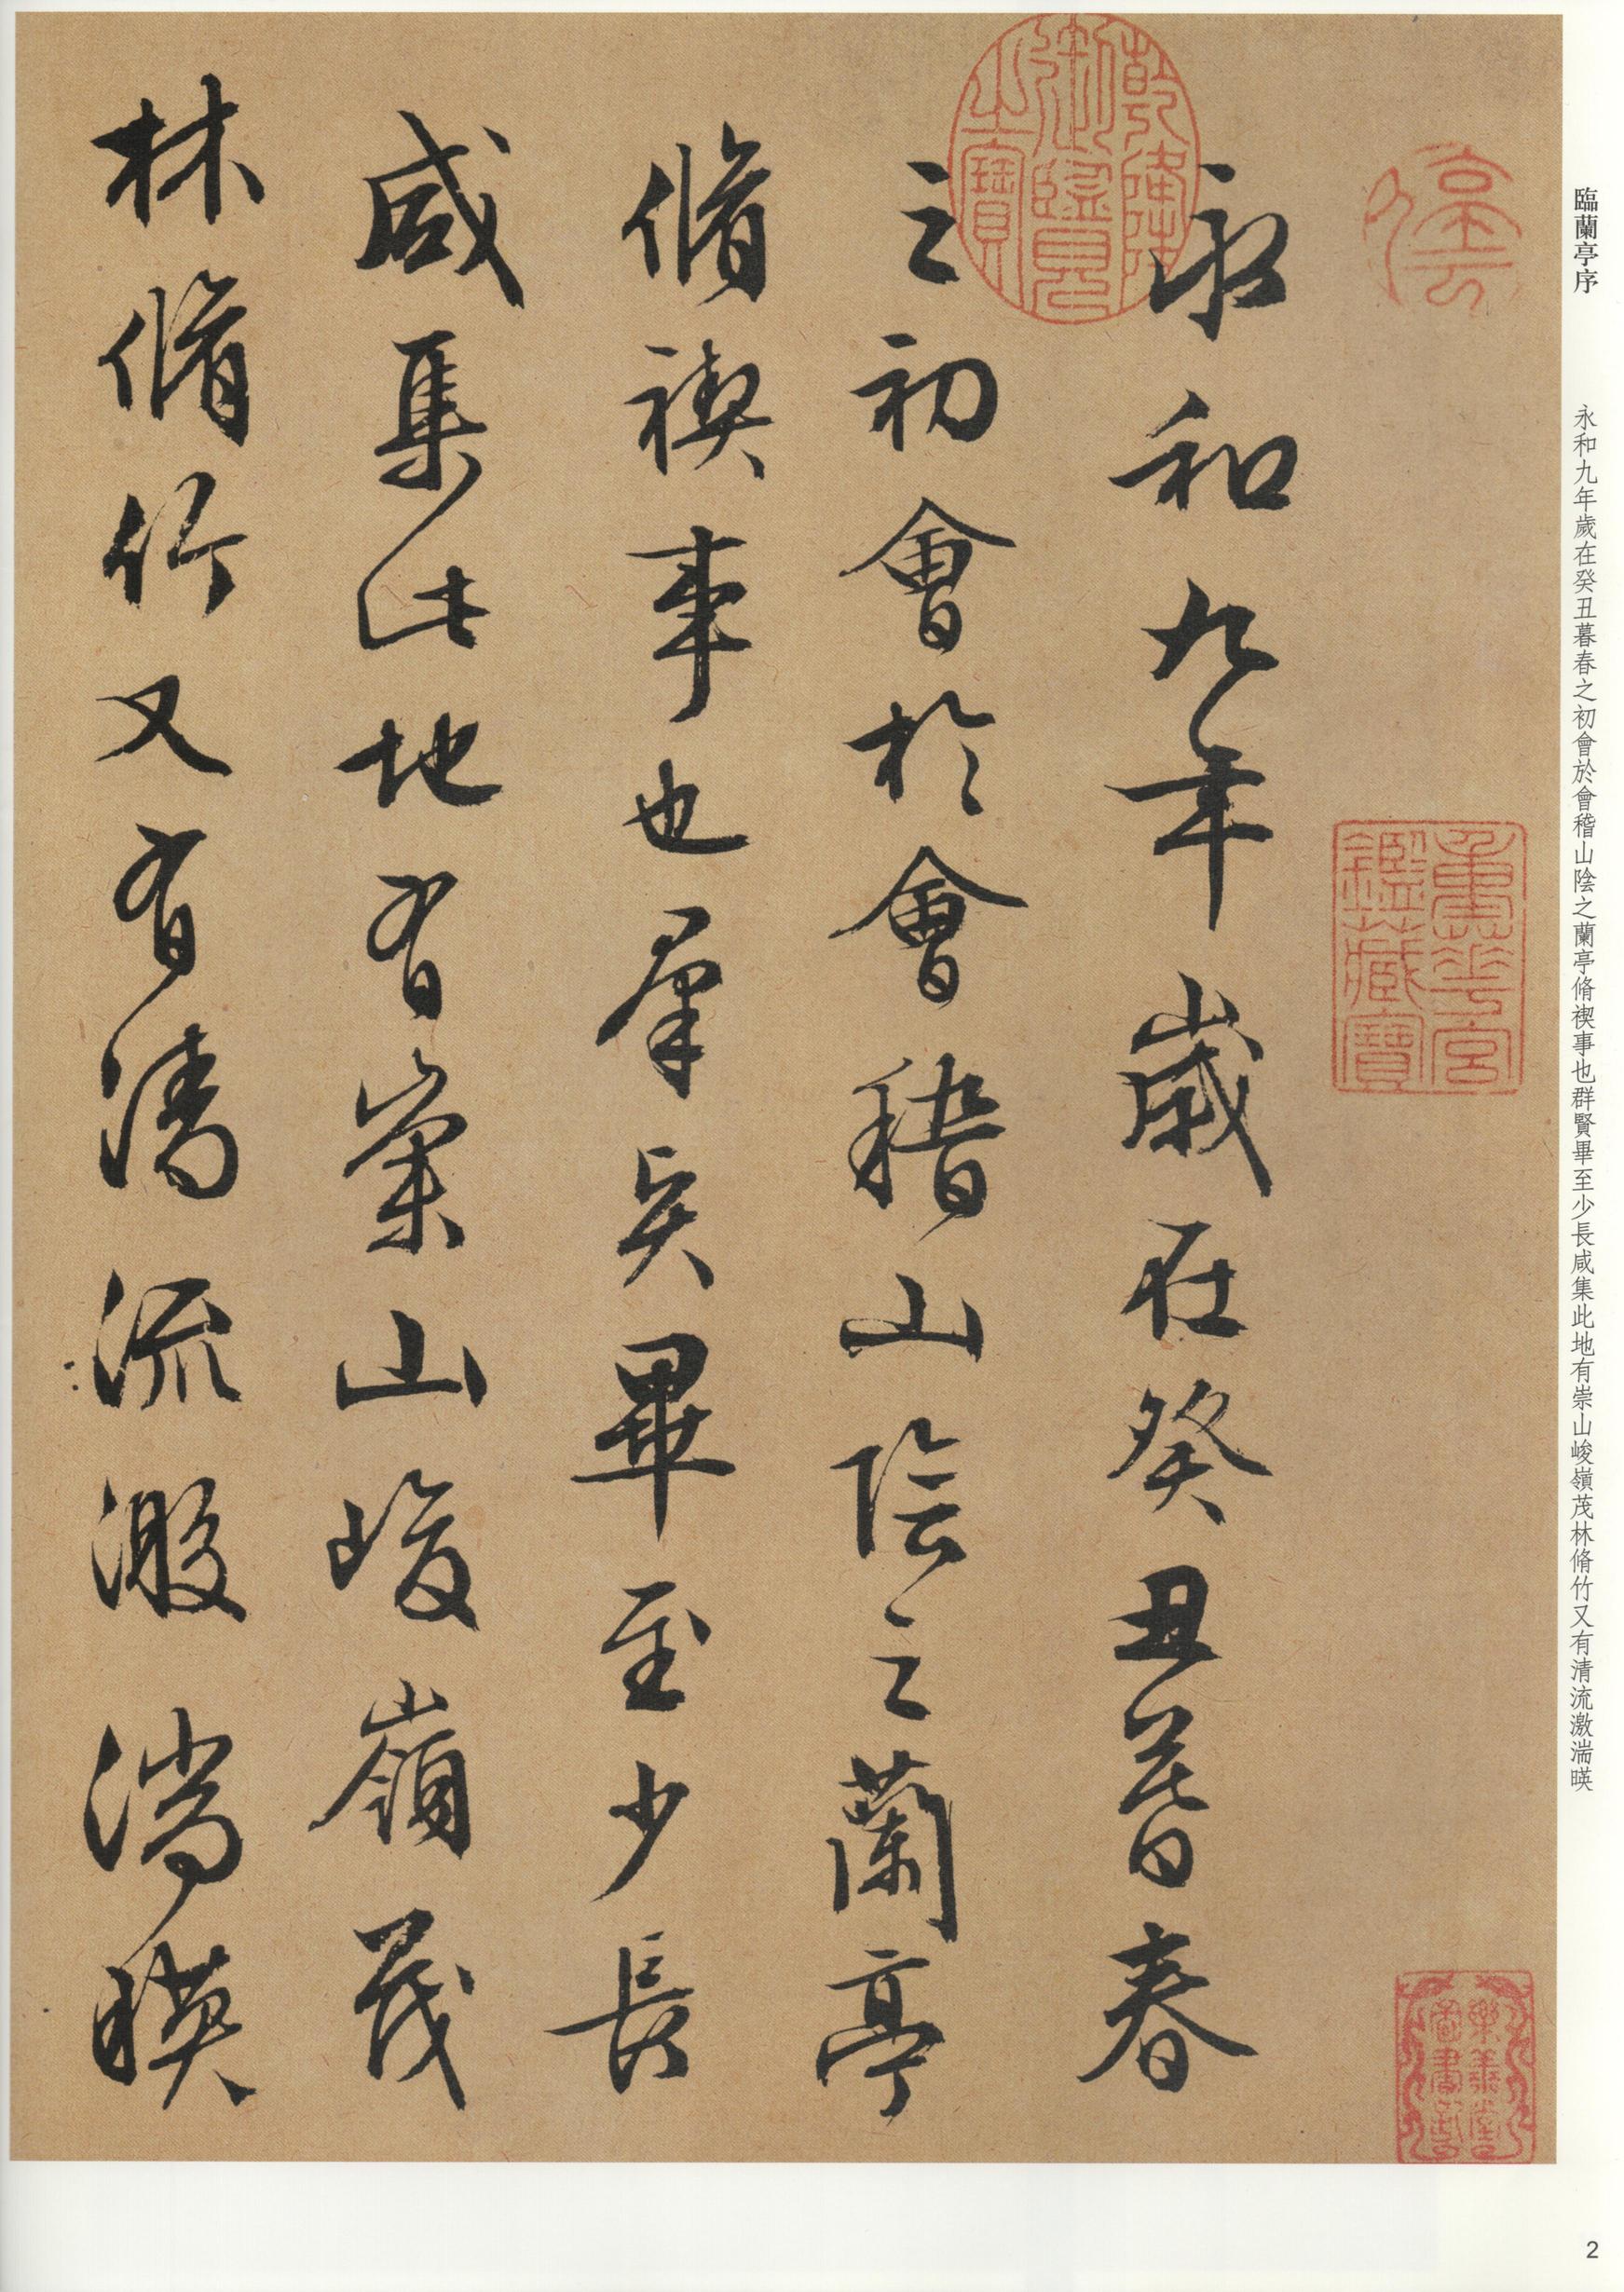 臨蘭亭序
永和九年歲在癸丑暮春之初會於會稽山陰之蘭亭脩禊事也群賢畢至少長咸集此地有崇山峻嶺茂林脩竹又有清流激湍暎
永和九年歲在癸丑暮春
之初會於會稽山陰之蘭亭
脩禊事也羣賢畢至少長
咸集此地有崇山峻嶺茂
林脩竹又有清流激湍暎
乾隆御覽之寶
重華宮鑑藏寶
樂善堂圖書記
2